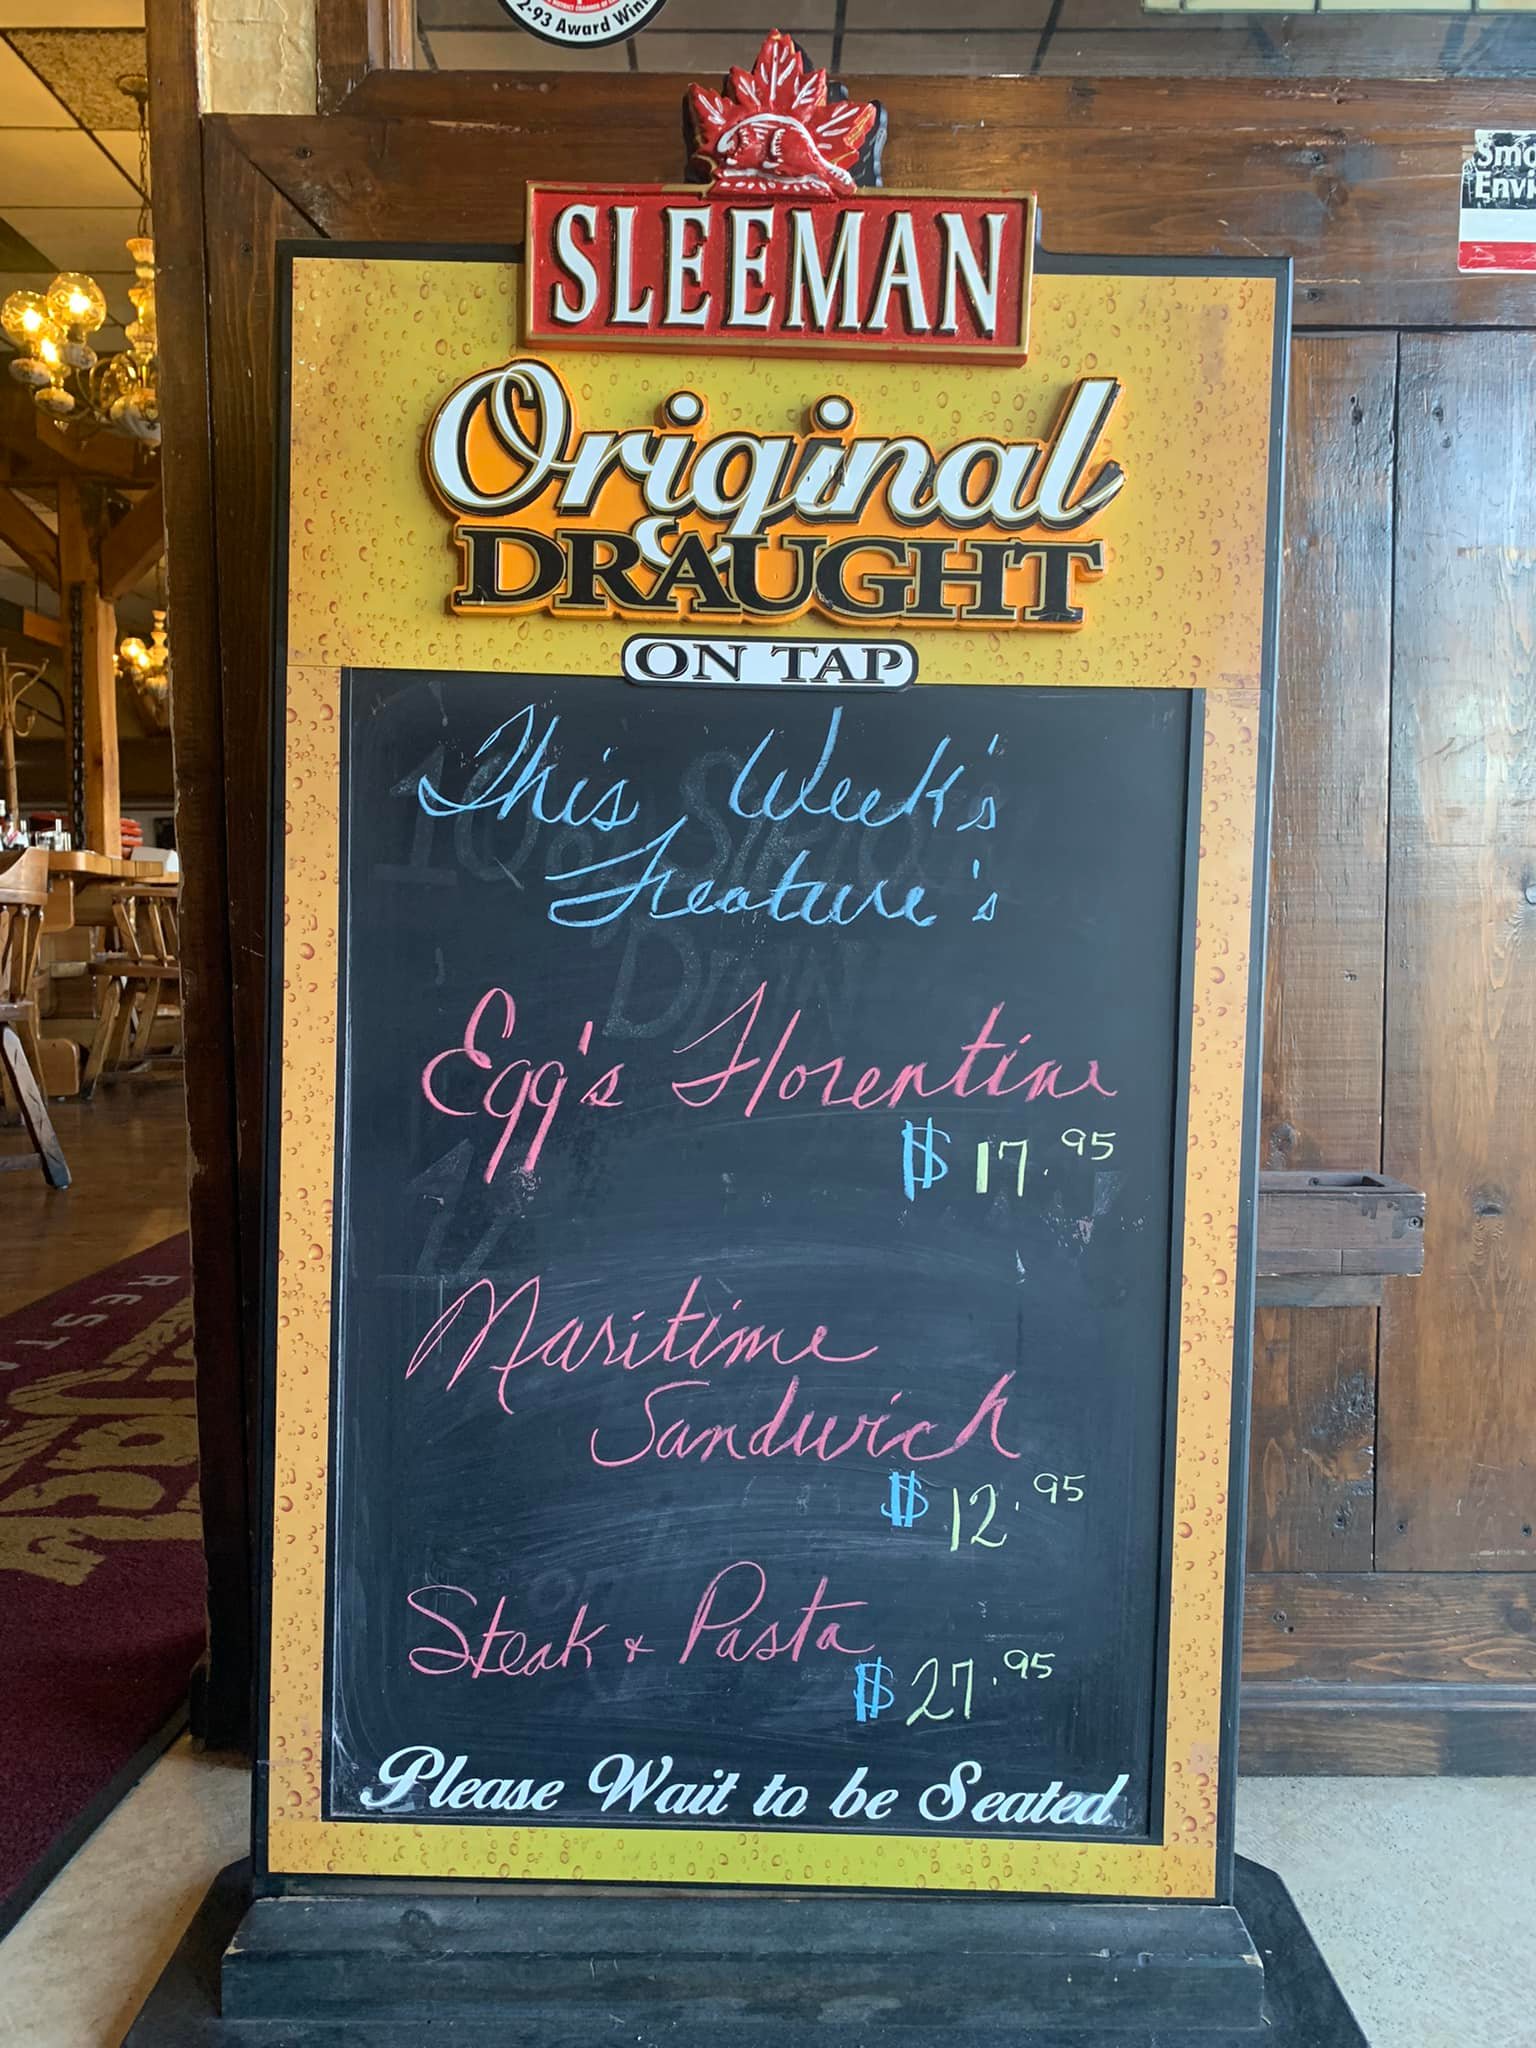 2-93 Award Winn
SLEEMAN
Original
&
DRAUGHT
ON TAP
Smo
Envi
This Week's
Feature's
Egg's Florentine
$ 17.95
Maritime
Sandwich
$ 12.95
Steak & Pasta
$ 27.95
Please Wait to be Seated
REST